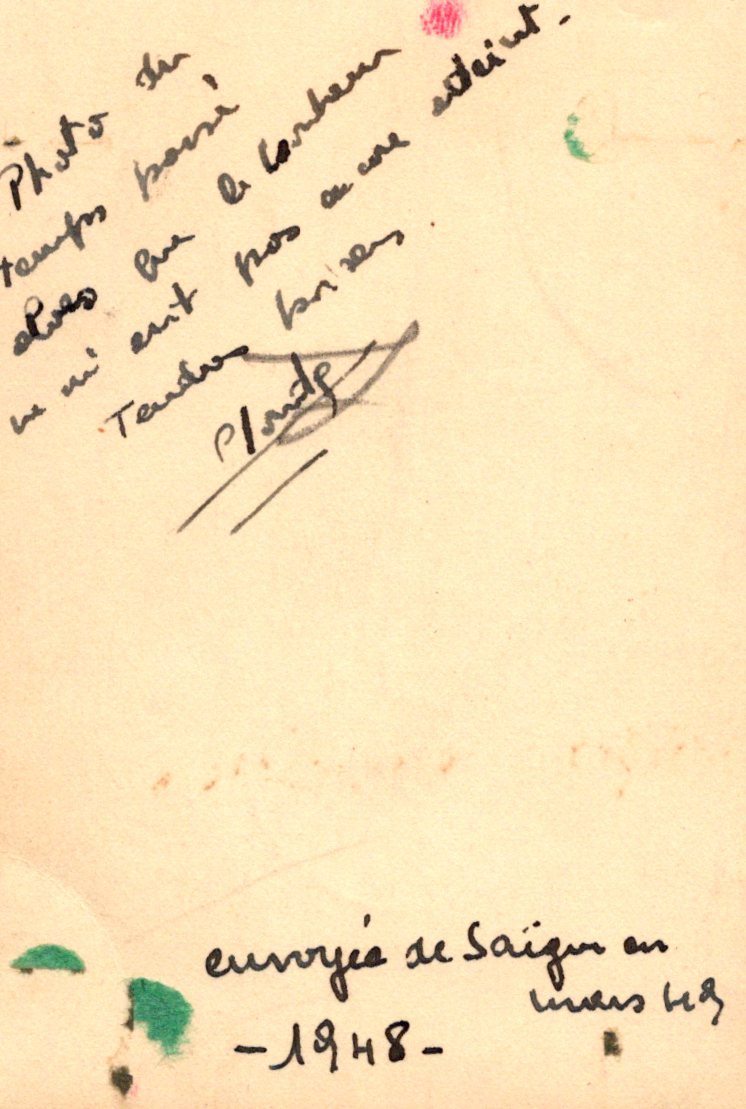 Photo du
temps passé
alors que le bonheur
ne m'avait pas encore atteint.
Tendres baisers
envoyée de Saïgon en
mars 49
-1948-